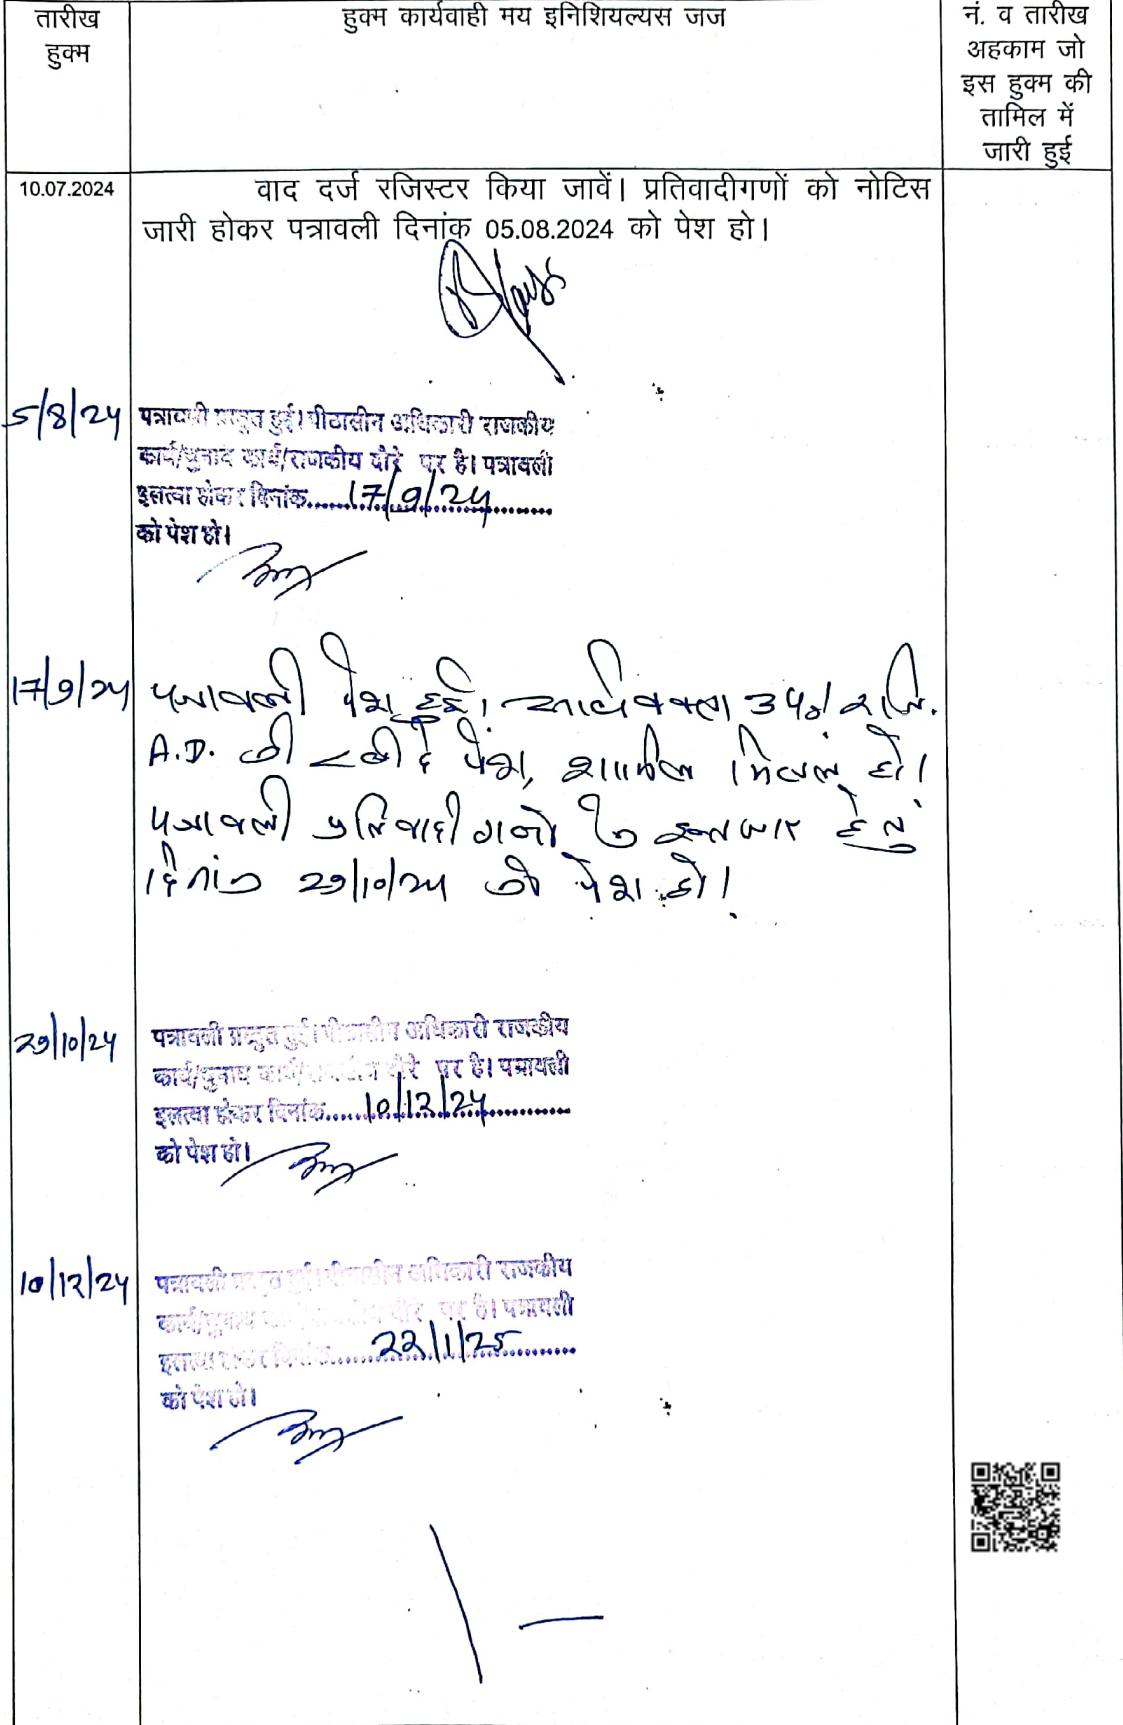 तारीख
हुक्म
हुक्म कार्यवाही मय इनिशियल्यस जज
नं. व तारीख
अहकाम जो
इस हुक्म की
तामिल में
जारी हुई
10.07.2024
वाद दर्ज रजिस्टर किया जावें। प्रतिवादीगणों को नोटिस
जारी होकर पत्रावली दिनांक 05.08.2024 को पेश हो।
5/8/24
पत्रावली प्रस्तुत हुई। पीठासीन अधिकारी राजकीय
कार्य/चुनाव कार्य/राजकीय दौरे पर है। पत्रावली
इतल्वा होकर दिनांक......17/9/24......
को पेश हो।
17/9/24
पत्रावली पेश हुई। उप०
A.D. की रसीदे पेश, शामील मिसल हो।
पत्रावली प्रतिवादीगणो के इन्तजार हेतु
दिनांक 29/10/24 को पेश हो।
29/10/24
पत्रावली प्रस्तुत हुई। पीठासीन अधिकारी राजकीय
कार्य/चुनाव कार्य/राजकीय दौरे पर है। पत्रावली
इतल्वा होकर दिनांक......10/12/24......
को पेश हो।
10/12/24
पत्रावली प्रस्तुत हुई। पीठासीन अधिकारी राजकीय
कार्य/चुनाव कार्य/राजकीय दौरे पर है। पत्रावली
इतल्वा होकर दिनांक......22/1/25......
को पेश हो।